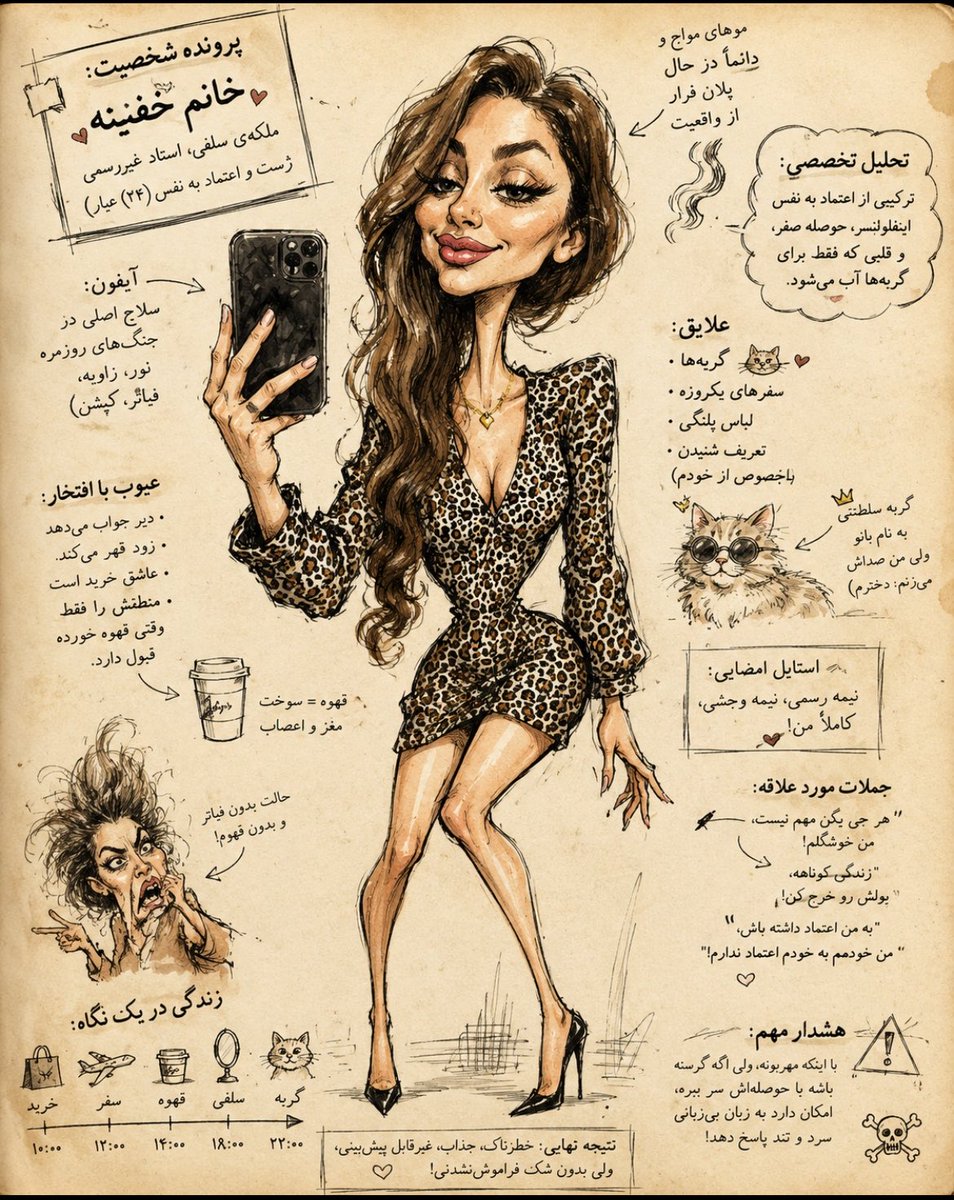 پرونده شخصیت:
خانم خفنینه
ملکه‌ی سلفی، استاد غیررسمی
ژست و اعتماد به نفس (۲۴) عیار)
موهای مواج و
دائماً دز حال
پلان فرار
از واقعیت
تحلیل تخصصي:
ترکیبی از اعتماد به نفس
اینفلولنسر، حوصله صفر،
و قلبی که فقط برای
گربه‌ها آب می‌شود.
آیفون:
سلاح اصلی دز
جنگ‌های روزمره
نور، زاویه،
فیاتٌر، کپشن)
علایق:
• گربه‌ها
• سفرهای یکروزه
• لباس پلنگی
• تعریف شنیدن
(باخصوص از خودم)
گربه سلطنتی
به نام بانو
ولی من صداش
می‌زنم: دخترم)
عیوب با افتخار:
• دیر جواب می‌دهد
• زود قهر می‌کند.
• عاشق خرید است
• منطقش را فقط
وقتی قهوه خورده
قبول دارد.
قهوه = سوخت
مغز و اعصاب
استایل امضایی:
نیمه رسمی، نیمه وجشی،
کاملاً من!
حالت بدون فیاتر
و بدون قهوم!
جملات مورد علاقه:
"هر جی یگن مهم نیست،
من خوشگلم!
"زندگی کوناهه،
بولش رو خرج کن!"
"به من اعتماد داشته باش،"
"من خودمم به خودم اعتماد ندارم!"
زندگی در یک نگاه:
خرید
سفر
قهوه
سلفی
گربه
۱۰:۰۰
۱۲:۰۰
۱۴:۰۰
۱۸:۰۰
۲۲:۰۰
هشدار مهم:
با اینکه مهربونه، ولی اگه گرسنه
باشه یا حوصله‌اش سر بیره،
امکان دارد به زبان بی‌زبانی
سرد و تند پاسخ دهد!
نتیجه نهایی: خطرناک، جذاب، غیرقابل پیش‌بینی،
ولی بدون شک فراموش‌نشدنی!